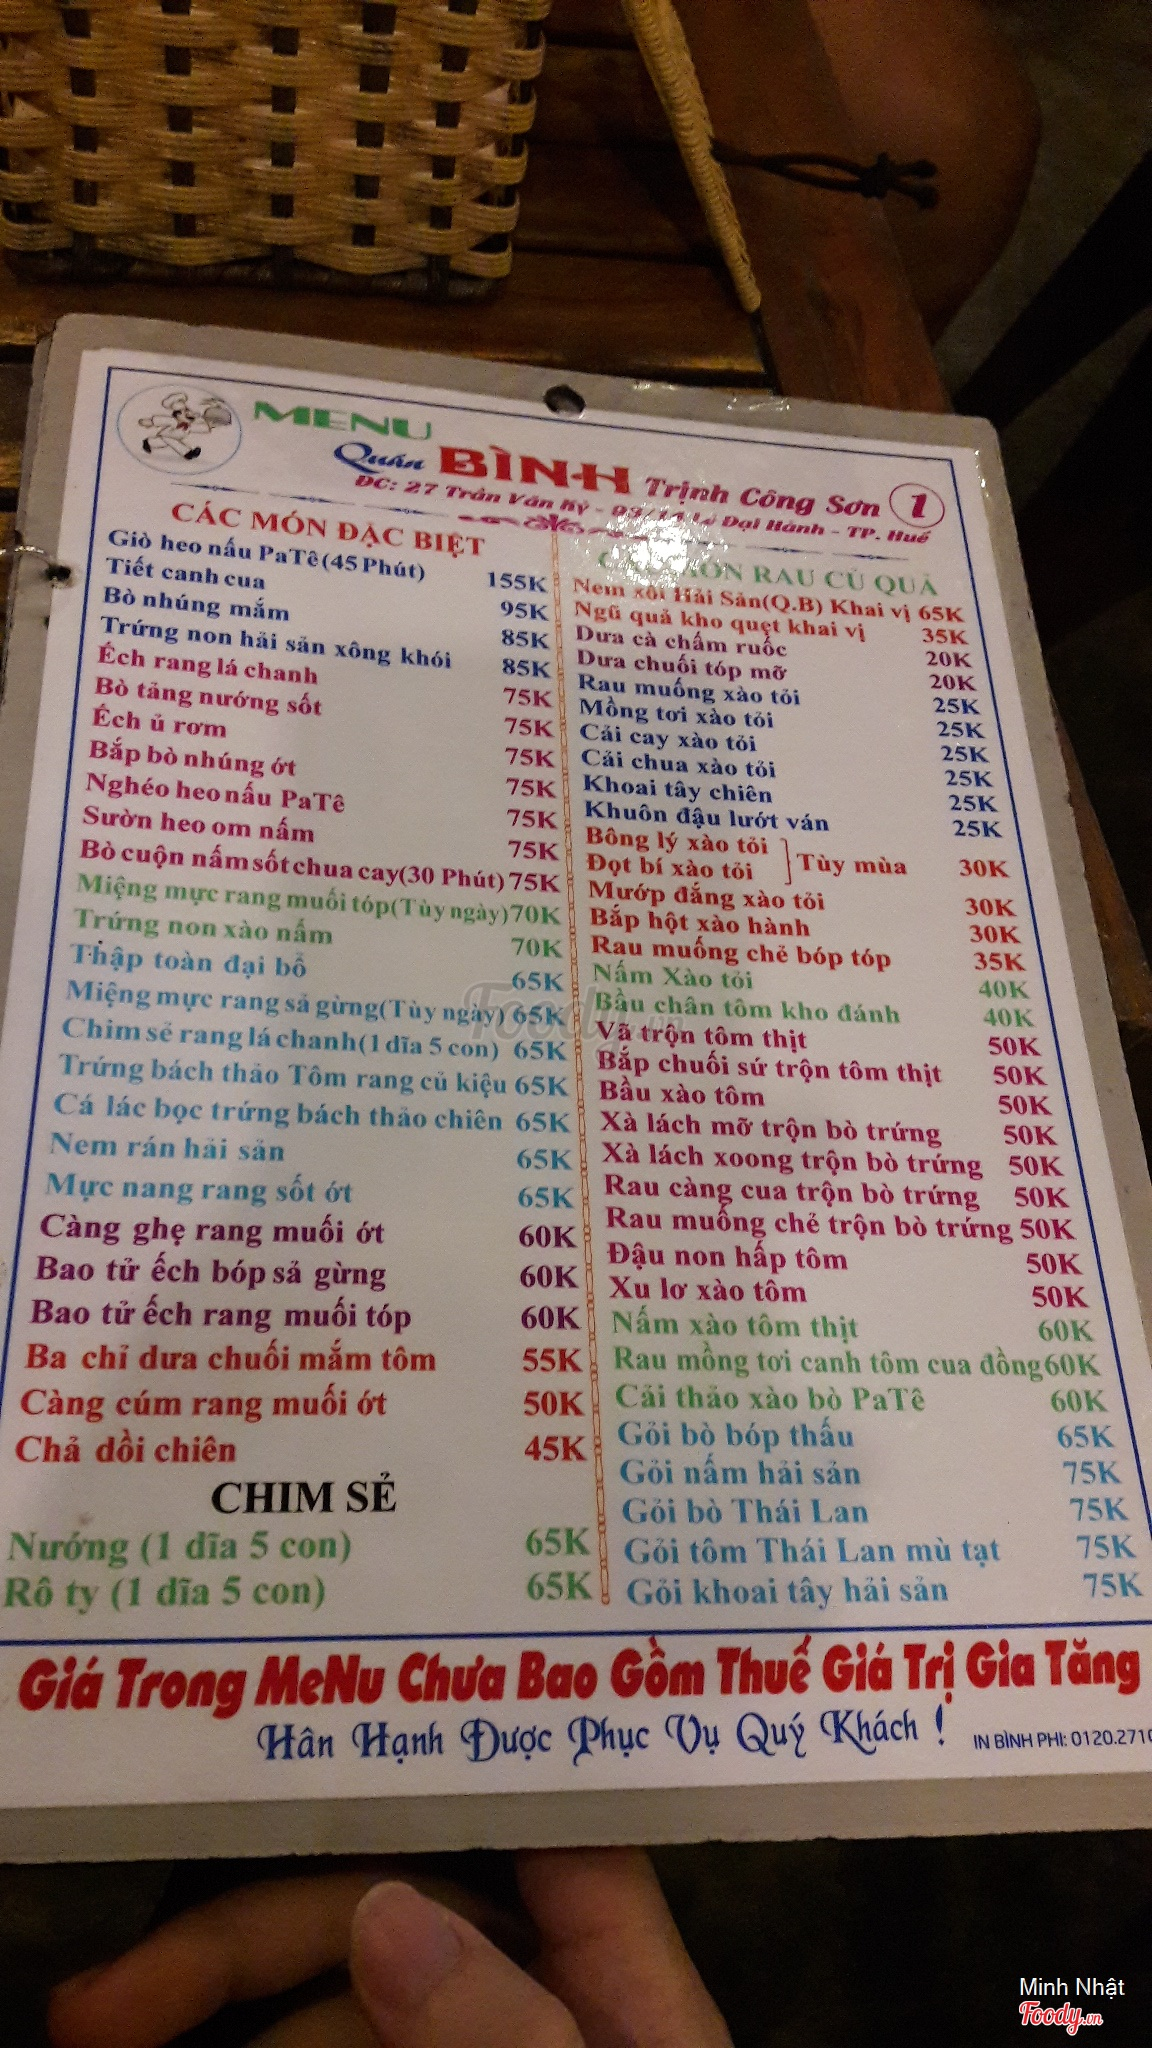 MENU
Quán BÌNH Trịnh Công Sơn 1
ĐC: 27 Trần Văn Kỷ - Lê Đại Hành - TP. Huế
CÁC MÓN ĐẶC BIỆT
Giò heo nấu PaTê(45 Phút) 155K
Tiết canh cua 95K
Bò nhúng mắm 85K
Trứng non hải sản xông khói 85K
Ếch rang lá chanh 75K
Bò tảng nướng sốt 75K
Ếch ủ rơm 75K
Bắp bò nhúng ớt 75K
Nghéo heo nấu PaTê 75K
Sườn heo om nấm 75K
Bò cuộn nấm sốt chua cay(30 Phút) 75K
Miệng mực rang muối tóp(Tùy ngày) 70K
Trứng non xào nấm 70K
Thập toàn đại bổ 65K
Miệng mực rang sả gừng(Tùy ngày) 65K
Chim sẻ rang lá chanh(1 dĩa 5 con) 65K
Trứng bách thảo Tôm rang củ kiệu 65K
Cá lác bọc trứng bách thảo chiên 65K
Nem rán hải sản 65K
Mực nang rang sốt ớt 65K
Càng ghẹ rang muối ớt 60K
Bao tử ếch bóp sả gừng 60K
Bao tử ếch rang muối tóp 60K
Ba chỉ dưa chuối mắm tôm 55K
Càng cúm rang muối ớt 50K
Chả dồi chiên 45K
CHIM SẺ
Nướng (1 dĩa 5 con) 65K
Rô ty (1 dĩa 5 con) 65K
MÓN RAU CỦ QUẢ
Nem xôi Hải Sản(Q.B) Khai vị 65K
Ngũ quả kho quẹt khai vị 35K
Dưa cà chấm ruốc 20K
Dưa chuối tóp mỡ 20K
Rau muống xào tỏi 25K
Mồng tơi xào tỏi 25K
Cải cay xào tỏi 25K
Cải chua xào tỏi 25K
Khoai tây chiên 25K
Khuôn đậu lướt ván 25K
Bông lý xào tỏi
Đọt bí xào tỏi Tùy mùa 30K
Mướp đắng xào tỏi 30K
Bắp hột xào hành 30K
Rau muống chẻ bóp tóp 35K
Nấm Xào tỏi 40K
Bầu chân tôm kho đánh 40K
Vã trộn tôm thịt 50K
Bắp chuối sứ trộn tôm thịt 50K
Bầu xào tôm 50K
Xà lách mỡ trộn bò trứng 50K
Xà lách xoong trộn bò trứng 50K
Rau càng cua trộn bò trứng 50K
Rau muống chẻ trộn bò trứng 50K
Đậu non hấp tôm 50K
Xu lơ xào tôm 50K
Nấm xào tôm thịt 60K
Rau mồng tơi canh tôm cua đồng 60K
Cải thảo xào bò PaTê 60K
Gỏi bò bóp thấu 65K
Gỏi nấm hải sản 75K
Gỏi bò Thái Lan 75K
Gỏi tôm Thái Lan mù tạt 75K
Gỏi khoai tây hải sản 75K
Giá Trong MeNu Chưa Bao Gồm Thuế Giá Trị Gia Tăng
Hân Hạnh Được Phục Vụ Quý Khách !
IN BÌNH PHI: 0120.2710
Foody.vn
Minh Nhật
Foody.vn